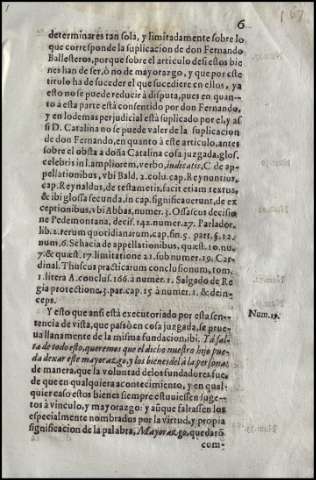 6
167
determinares tan sola, y limitadamente sobre lo
que corresponde la suplicacion de don Fernando
Ballestero, porque sobre el articulo de si estos bie
nes han de ser, ò no de mayorazgo, y que por este
titulo ha de suceder el que sucediere en ellos, ya
esto no se puede reducir à disputa, pues en quan-
to à esta parte està consentido por don Fernando,
y en lo demas perjudicial està suplicado por el, y as
si D. Catalina no se puede valer de la suplicacion
de don Fernando, en quanto à este articulo, antes
sobre el obsta a doña Catalina cosa juzgada, glos.
celebris in l. ampliorem, verbo, iudicatis, C. de ap-
pellationibus, vbi Bald. 2. colu. cap. Reynuntius,
cap. Reynaldus, de testametis. facit etiam textus,
& ibi glossa secunda, in cap. significauerunt, de ex
ceptionibus, vbi Abbas, numer. 3. Ossascus decisio
ne Pedemontana, decis. 142. numer. 27. Parlador.
lib. 2. rerum quotidianarum, cap. fin. 5. part. §. 12.
num. 6. Sehacia de appellationibus, quæst. 10. nu.
7. & quæst. 17. limitatione 21. sub numer. 19. Car-
dinal. Thuscus practicarum conclusionum, tom.
1. litera A. conclus. 166. à numer. 1. Salgado de Re
gia protectione, 3. par. cap. 15 à numer. 1. & dein-
ceps.
Y esto que ansi està executoriado por esta sen-
Num. 19.
tencia de vista, que passò en cosa juzgada, se prue-
ua llanamente de la misma fundacion, ibi. Y à fal-
ta de todo esto, queremos que el dicho nuestro hijo pue-
da dexar este mayorazgo, y los bienes del à la persona;
de manera, que la voluntad de los fundadores fue
de que en qualquiera acontecimiento, y en qual-
quier caso estos bienes siempre estuuiessen suge-
tos à vinculo, y mayorazgo: y aũque faltassen los
especialmente nombrados por la virtud, y propia
significacion de la palabra, Mayorazgo, quedarõ
com-